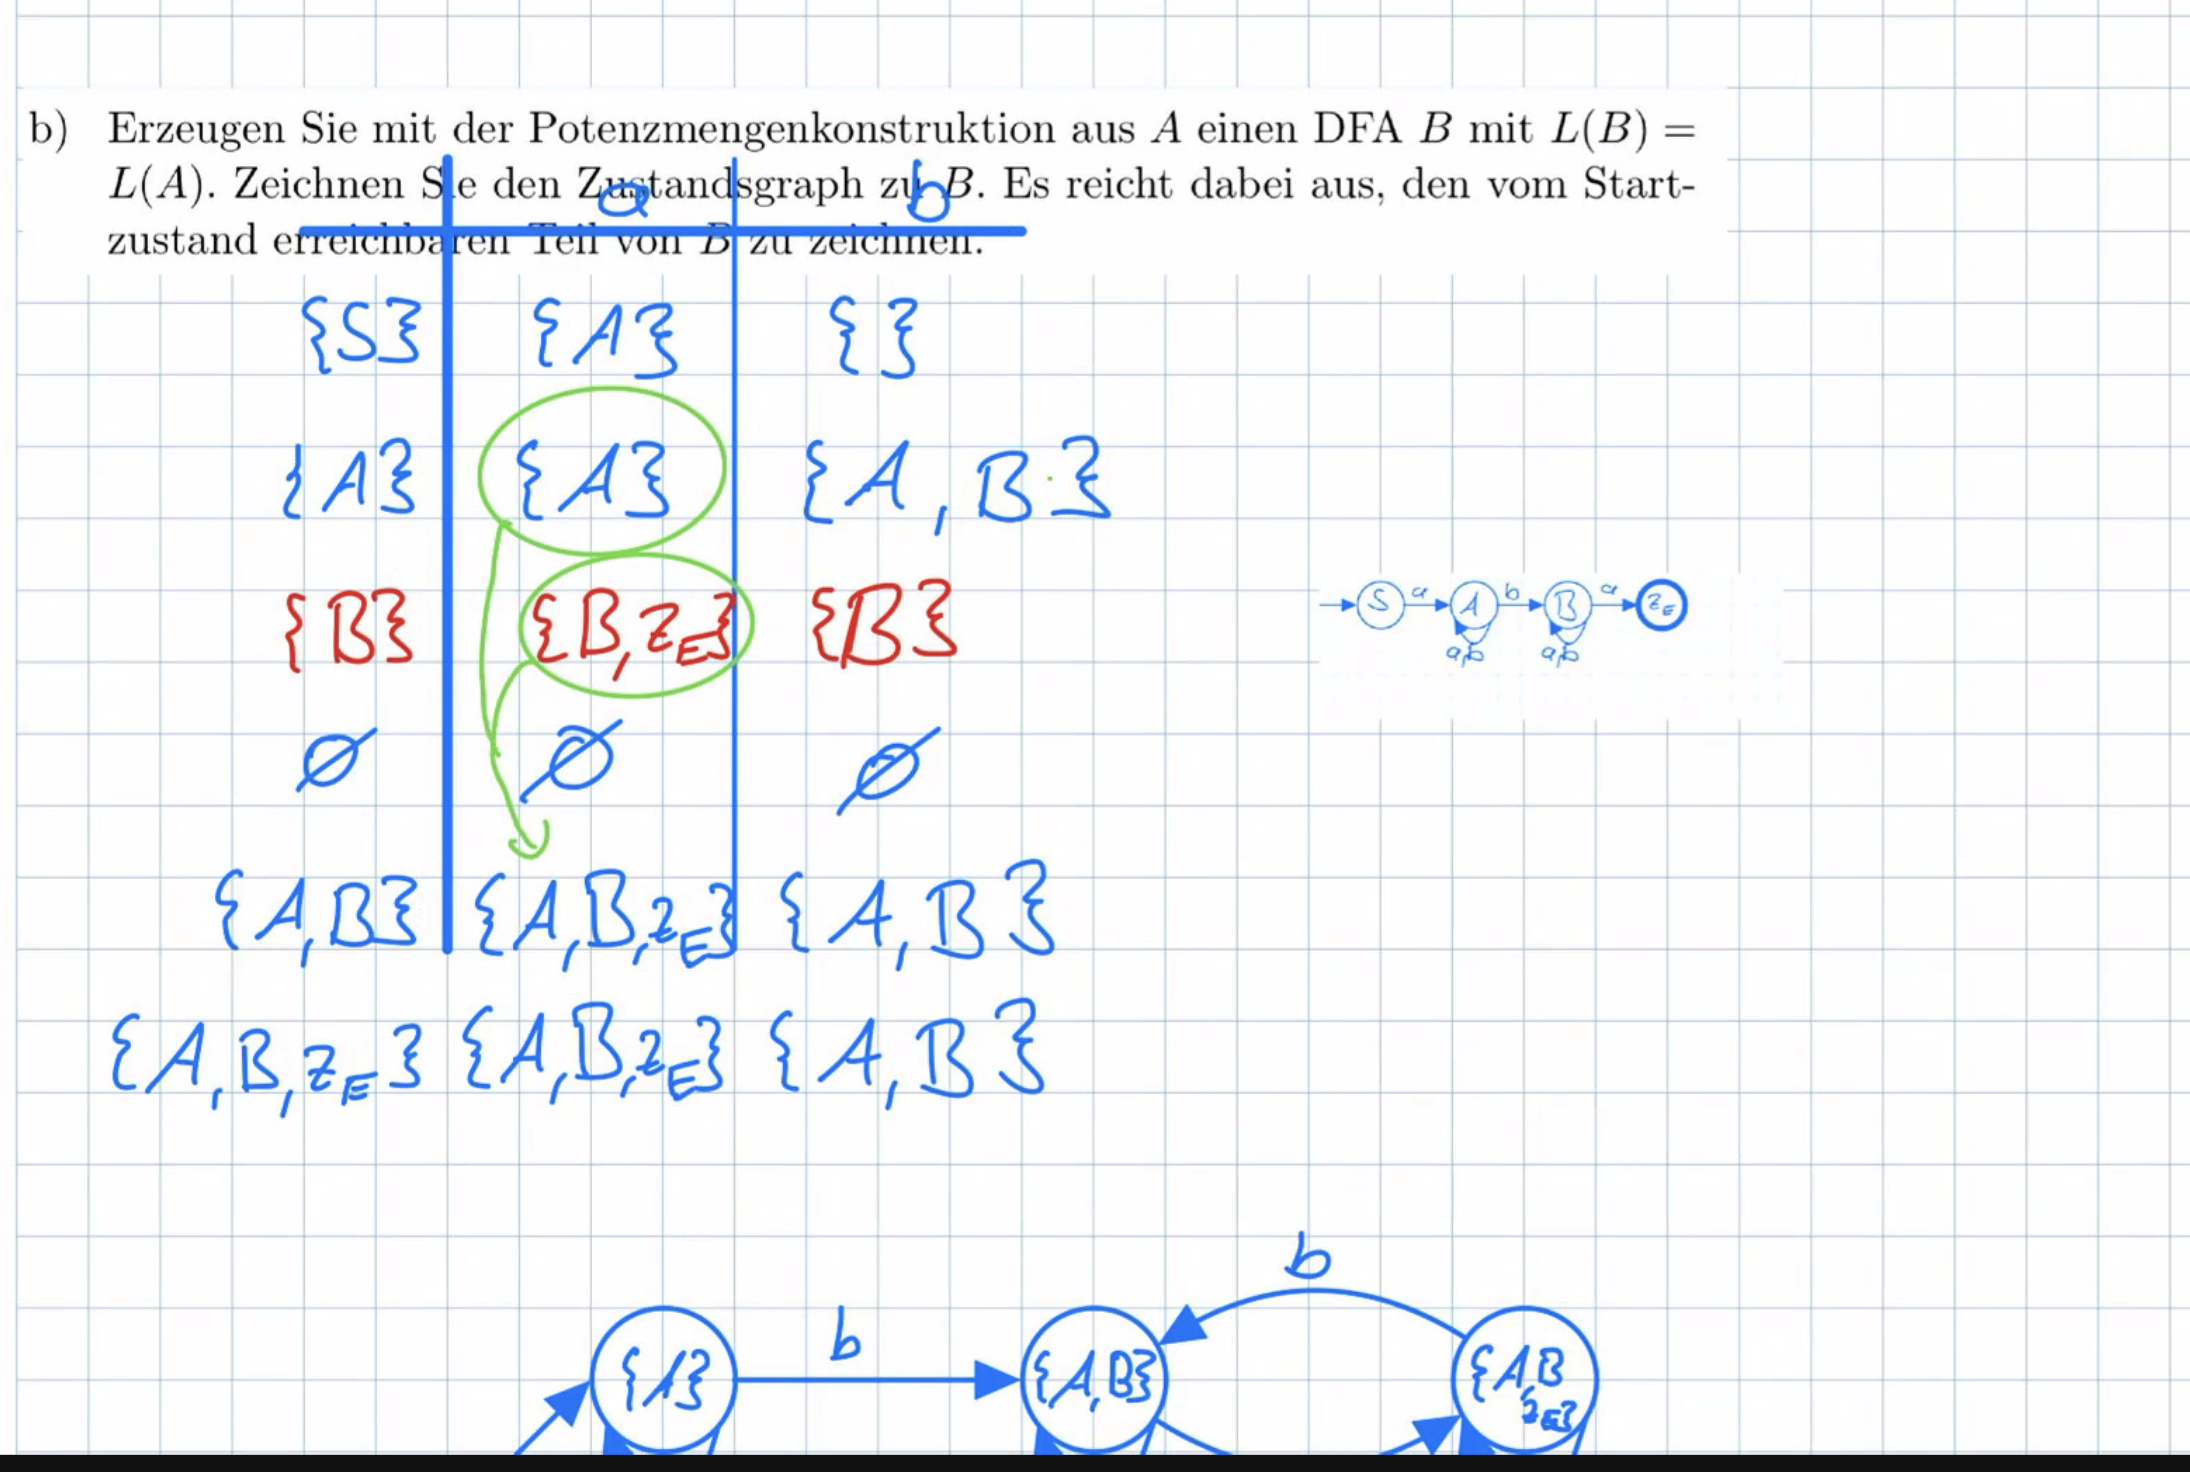 b) Erzeugen Sie mit der Potenzmengenkonstruktion aus A einen DFA B mit L(B) =
L(A). Zeichnen Sie den Zustandsgraph zu B. Es reicht dabei aus, den vom Start-
zustand erreichbaren Teil von B zu zeichnen.
a b
{S} {A} { }
{A} {A} {A, B}
{B} {B, z_E} {B}
S a A b B a z_E
a,b a,b
∅ ∅ ∅
{A, B} {A, B, z_E} {A, B}
{A, B, z_E} {A, B, z_E} {A, B}
b
b
{A} {A, B} {A, B
z_E}